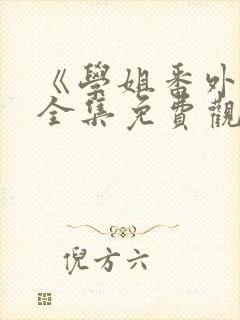 《學姐番外
全集免費觀
倪方六